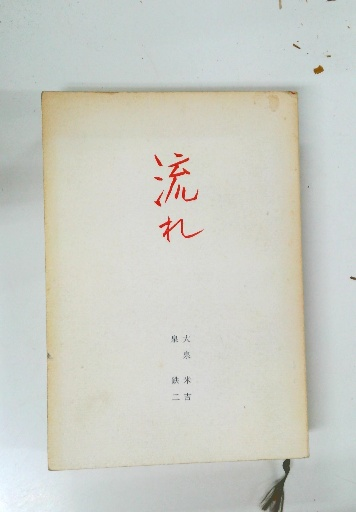 流れ
大泉米吉
泉鉄二